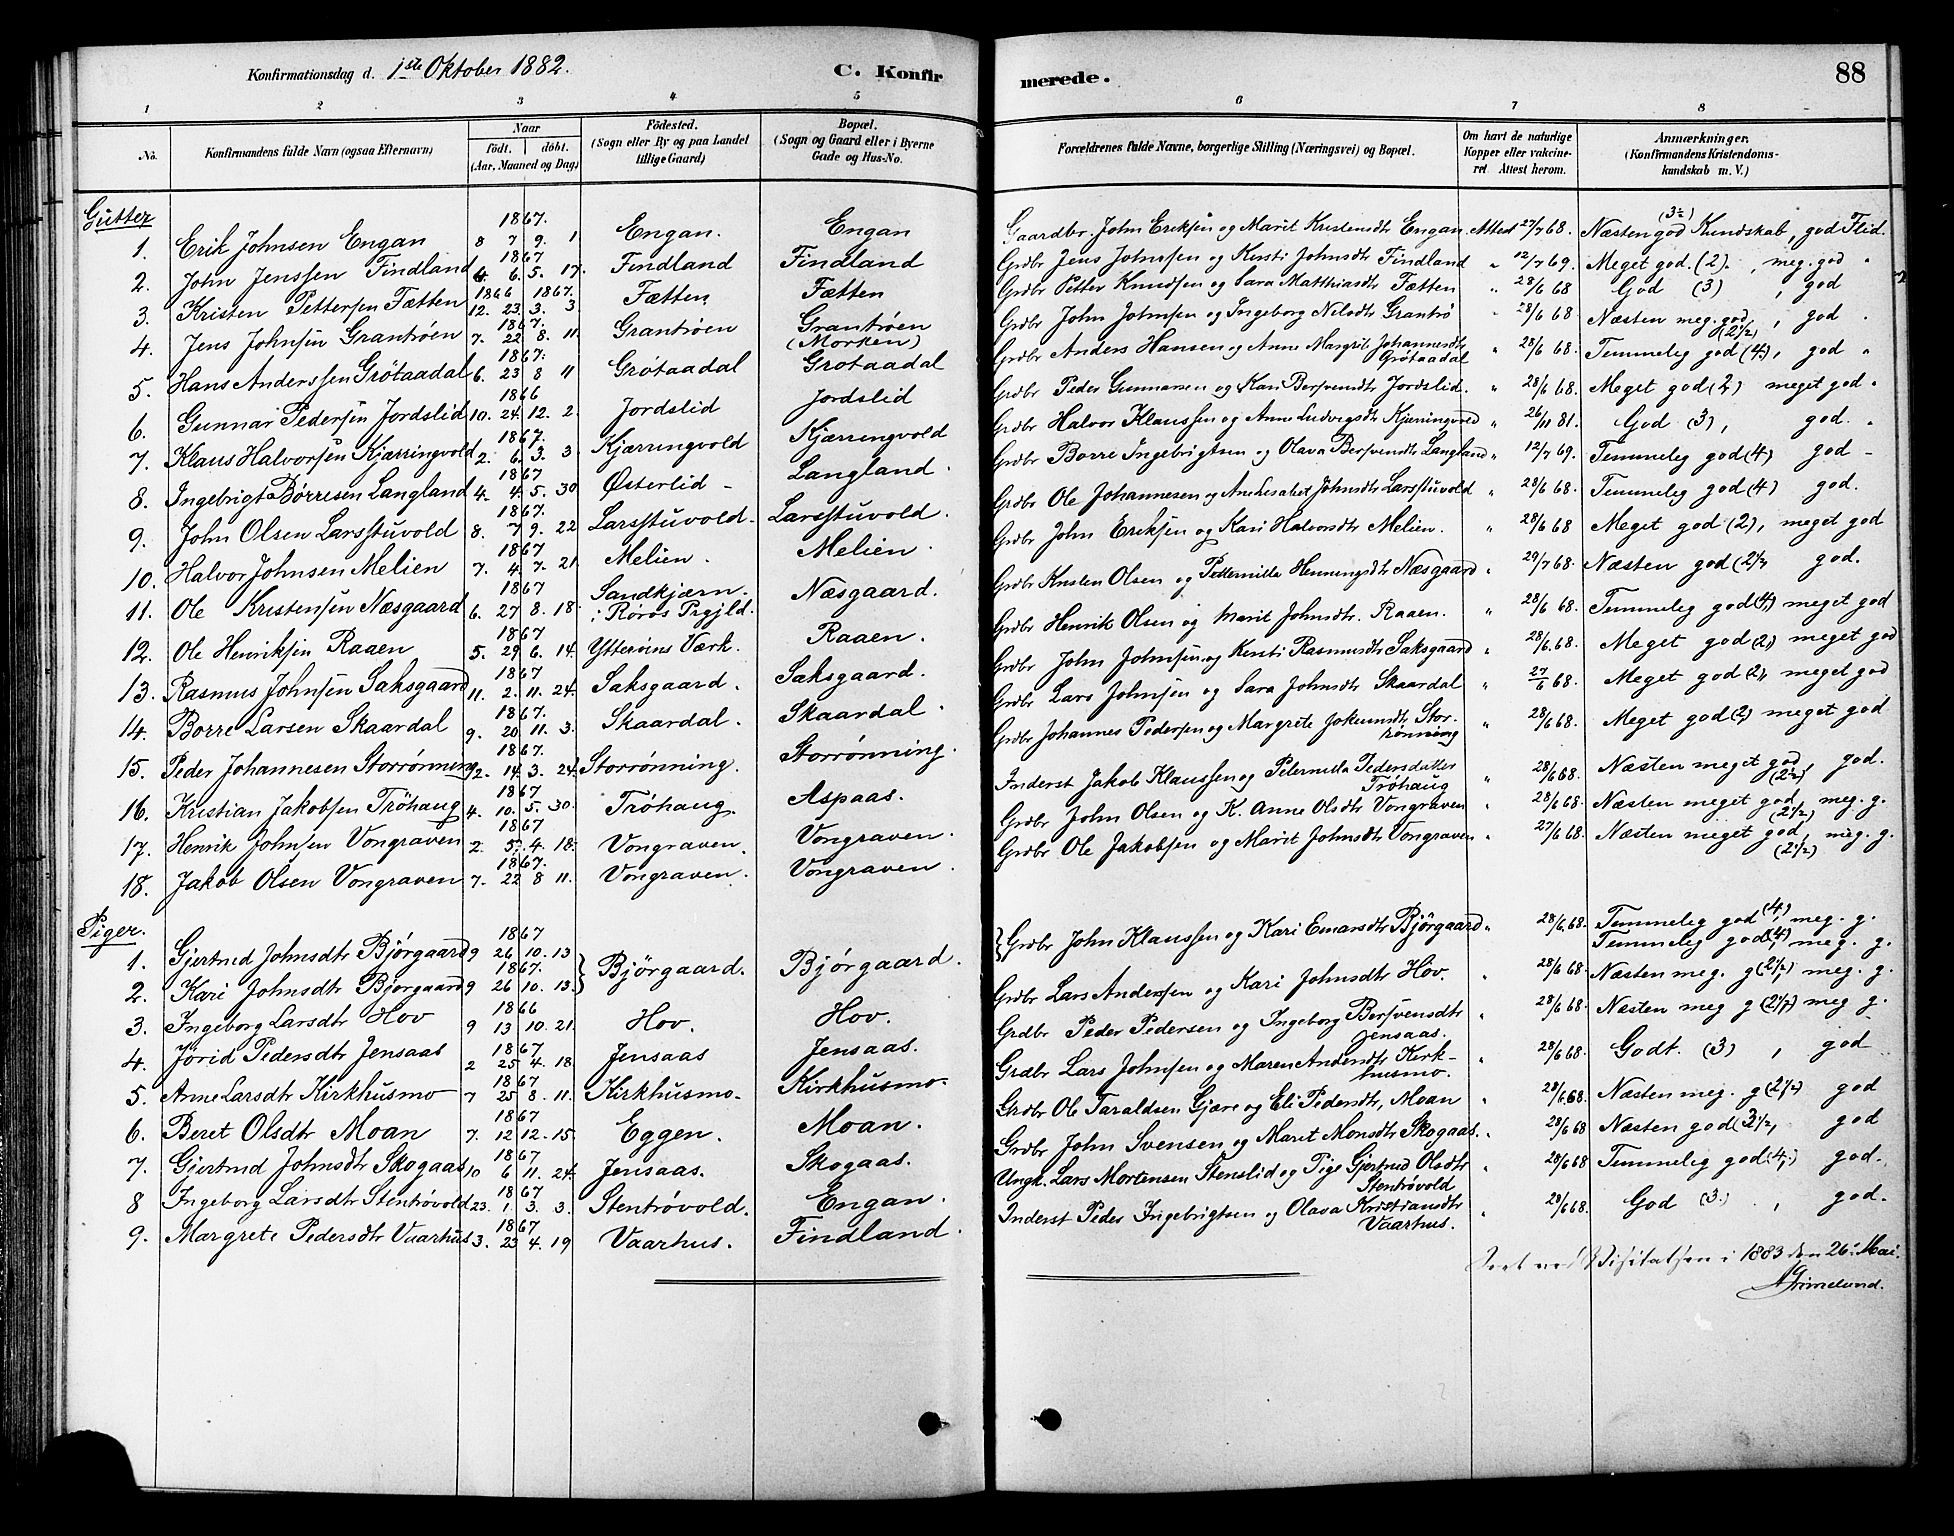 Konfirmationsdag d. 1ste Oktober 1882. C. Konfirmerede. 88
1 2 3 4 5 6 7 8
No. Konfirmandens fulde Navn (ogsaa Efternavn) Naar födt. döbt. (Aar, Maaned og Dag) Födested. (Sogn eller By og paa Landet tillige Gaard) Bopæl. (Sogn og Gaard eller i Byerne Gade og Hus-No. Forældrenes fulde Navne, borgerlige Stilling (Næringsvei) og Bopæl. Om havt de naturlige Kopper eller vakcineret Attest herom. Anmærkninger. (Konfirmandens Kristendomskundskab m. V.)
Gutter
1. Erik Johnsen Engan 1867. 8 7 9. 1 Engan. Engan Gaardbr. John Eriksen og Marit Kristensdtr Engan. Attest 27/7 68. Næsten god (3½) Kundskab, god Flid.
2. John Jenssen Findland 1867 4 6. 5. 17. Findland Findland Grdbr Jens Johnsen og Kirsti Johnsdtr Findland " 12/7 69. Meget god. (2). , meg. god "
3. Kristen Pettersen Fætten 1866 1867. 12. 23. 3. 3 Fætten Fætten Grdbr Petter Knudsen og Sara Matthiasdtr Fætten " 28/6 68 God (3) , god
4. Jens Johnsen Grantröen 1867. 7. 22 8. 11. Grantröen Grantröen (Morken) Grdbr John Johnsen og Ingeborg Nilsdtr Grantrö " 28/6 68 Næsten meg. god (2½), god .
5. Hans Anderssen Grötaadal 1867. 6. 23 8 11 Grötaadal Grötaadal Grdbr Anders Hansen og Anne Margrit Johannesdtr Grötaadal " 28/6 68. Temmelig god (4), god "
6. Gunnar Pedersen Jordslid 1866 10. 24. 12. 2. Jordslid Jordslid Grdbr Peder Gunnarsen og Kari Bersvendtr Jordslid. " 28/6 68. Meget god (2) meget god "
7. Klaus Halvorsen Kjærringvold 1867. 2. 6. 3. 3 Kjærringvold Kjærringvold Grdbr Halvor Klaussen og Anne Ludvigsdtr Kjærringvold " 26/11 81. God (3), god. "
8. Ingebrigt Börresen Langland 1867 4. 4. 5. 30 Österlid - Langland. Grdbr Borre Ingebrigtsen og Olava Bersvendtr Langland " 12/7 69. Temmelig god (4) god -
9. John Olsen Larsstuvold 1867. 8. 7 9. 22 Larsstuvold. Larsstuvold. Grdbr Ole Johannesen og Ane Lisabet Johnsdtr Larsstuvold " 28/6 68. Temmelig god (4) god.
10. Halvor Johnsen Melien 1867 7. 4. 7. 21. Melien. Melien. Grdbr John Eriksen og Kari Halvorsdtr Melien. " 28/6 68 Meget god (2), meget god
11. Ole Kristensen Næsgaard 1867 6. 27 8. 18. Sandkjærn. i Röros Prgjld. Næsgaard. Grdbr Kristen Olsen og Petternilla Henningsdtr Næsgaard " 29/7 68. Næsten god (2½, god.
12. Ole Henriksen Raaen 1867 5. 29 6. 14. Ytteröens Værk. Raaen. Grdbr Henrik Olsen og Marit Johnsdtr. Raaen. " 28/6 68. Temmelig god (4) meget god
13. Rasmus Johnsen Saksgaard 1867 11. 2. 11. 24. Saksgaard. Saksgaard. Grdbr John Johnsen og Kirsti Rasmusdtr Saksgaard " 28/6.68. Meget god (2) meget god
14. Borre Larsen Skaardal 1867. 9. 20 11. 3. Skaardal. Skaardal. Grdbr Lars Johnsen og Sara Johnsdtr Skaardal " 27/6 68. Meget god (2, meget god
15. Peder Johannesen Storrönning 1867. 12. 14. 3. 24. Storrönning. Storrönning. Grdbr Johannes Pedersen og Margrete Jokumdtr Storrönning " 28/6 68. Meget god (2) meget god
16. Kristian Jakobsen Tröhaug 1867 4. 10. 5. 30. Tröhaug. Aspaas. Inderst Jakob Klaussen og Peternilla Pedersdatter Tröhaug " 28/6 68. Næsten meget god (2½) god.
17. Henrik Johnsen Vongraven 1867 2. 5. 4. 18. Vongraven. Vongraven. Grdbr John Olsen og K. Anne Olsdtr Vongraven " 28/6 68. Næsten meget god (2½) meg. g.
18. Jakob Olsen Vongraven 1867. 7. 22 8 11. Vongraven. Vongraven. Grdbr Ole Jakobsen og Marit Johnsdtr Vongraven " 27/6 68. Næsten meget god, (2½) meg. g.
Piger.
1. Gjertrud Johnsdtr Bjørgaard 1867 9 26 10. 13 Bjørgaard. Bjørgaard. Grdbr John Klaussen og Kari Einarsdtr Bjørgaard " 28/6.68. Temmelig god (4), meg. g.
2. Kari Johnsdtr Bjørgaard 1867. 9 26 10. 13. Temmelig god (4), meg. g.
3. Ingeborg Larsdtr Hov 1866 9 13 10. 21. Hov. Hov. Grdbr Lars Andersen og Kari Johnsdtr Hov. " 28/6 68. Næsten meg. g (2½) meg. g.
4. Jörid Pedersdtr Jensaas 1867 2 25 4. 18 Jensaas Jensaas. Grdbr Peder Pedersen og Ingeborg Bersvensdtr Jensaas. " 28/6 68. Næsten meg g (2½) meg g.
5. Anne Larsdtr Kirkhusmo 1867 7 25 8. 11. Kirkhusmo. Kirkhusmo. Grdbr Lars Johnsen og Maren Andersdtr Kirkhusmo. " 28/6 68. Godt. (3) , god
6. Beret Olsdtr Moan 1867 7. 12 12. 15. Eggen. Moan. Grdbr Ole Taraldsen Gjære og Eli Pedersdtr, Moan " 28/6.68. Næsten meg. g (2½) god
7. Gjertrud Johnsdtr Skogaas 1867 10 6 11. 24. Jensaas. Skogaas. Grdbr John Svensen og Marit Monsdtr Skogaas. " 28/6 68 Næsten god (3½, god
8 Ingeborg Larsdtr Stentrövold 1867 23. 1. 3. 3. Stentrövold. Engan. Ungk. Lars Mortensen Stenslid og Pige Gjertrud Olsdtr Stentrövold " 28/6 68 Temmelig god (4,) god.
9. Margrete Pedersdtr Vaarhus 1867 3. 23 4. 19 Vaarhus. Findland. Inderst Peder Ingebrigtsen og Olava Kristiansdtr Vaarhus. " 28/6 68. God (3.) , god.
Seet ved Visitatsen i 1883 den 26. Mai.
Grimelund.